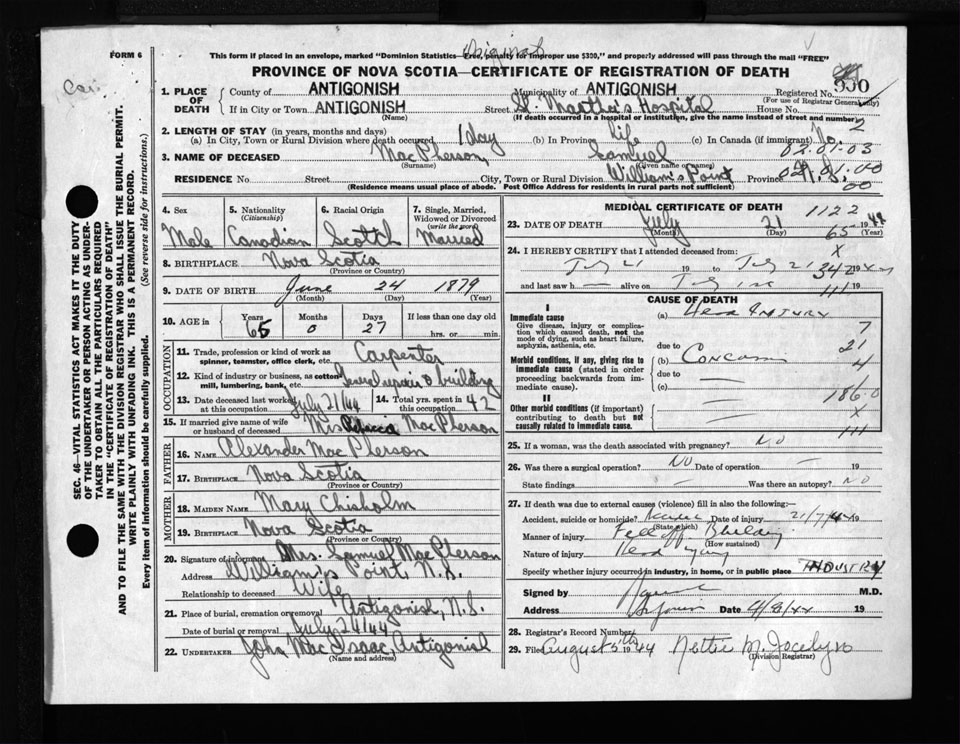 FORM 6
This form if placed in an envelope, marked "Dominion Statistics—Free, penalty for improper use $300," and properly addressed will pass through the mail "FREE"
Original
PROVINCE OF NOVA SCOTIA—CERTIFICATE OF REGISTRATION OF DEATH
1. PLACE OF DEATH
County of ANTIGONISH Municipality of ANTIGONISH Registered No. 550
(For use of Registrar General only)
If in City or Town ANTIGONISH Street St. Martha's Hospital House No.
(Name) (If death occurred in a hospital or institution, give the name instead of street and number)
2. LENGTH OF STAY (in years, months and days)
(a) In City, Town or Rural Division where death occurred 1 day (b) In Province life (c) In Canada (if immigrant) No. 2
02.01.03
3. NAME OF DECEASED MacPherson, Samuel
(Surname) (Given name or names)
RESIDENCE No. Street City, Town or Rural Division William's Point Province
(Residence means usual place of abode. Post Office Address for residents in rural parts not sufficient)
SEC. 46—VITAL STATISTICS ACT MAKES IT THE DUTY
OF THE UNDERTAKER OR PERSON ACTING AS UNDER-
TAKER TO OBTAIN ALL THE PARTICULARS REQUIRED
IN THE "CERTIFICATE OF REGISTRATION OF DEATH"
AND TO FILE THE SAME WITH THE DIVISION REGISTRAR WHO SHALL ISSUE THE BURIAL PERMIT.
WRITE PLAINLY WITH UNFADING INK. THIS IS A PERMANENT RECORD.
Every item of information should be carefully supplied. (See reverse side for instructions.)
4. Sex 5. Nationality 6. Racial Origin 7. Single, Married,
(Citizenship) Widowed or Divorced
(write the word)
Male Canadian Scotch Married
8. BIRTHPLACE Nova Scotia
(Province or Country)
9. DATE OF BIRTH June 24 1879
(Month) (Day) (Year)
10. AGE in Years Months Days If less than one day old
65 0 27 hrs. or min.
OCCUPATION
11. Trade, profession or kind of work as
spinner, teamster, office clerk, etc. Carpenter
12. Kind of industry or business, as cotton
mill, lumbering, bank, etc. General repair & building
13. Date deceased last worked
at this occupation July 21/44
14. Total yrs. spent in
this occupation 42
15. If married give name of wife
or husband of deceased Mrs Rebecca MacPherson
FATHER
16. NAME Alexander MacPherson
17. BIRTHPLACE Nova Scotia
(Province or Country)
MOTHER
18. MAIDEN NAME Mary Chisholm
19. BIRTHPLACE Nova Scotia
(Province or Country)
20. Signature of informant Mrs. Samuel MacPherson
Address William's Point, N.S.
Relationship to deceased Wife
21. Place of burial, cremation or removal Antigonish, N.S.
Date of burial or removal July 24/44
22. UNDERTAKER John MacIsaac, Antigonish
(Name and address)
MEDICAL CERTIFICATE OF DEATH 1122
23. DATE OF DEATH July 21 1944
(Month) (Day) (Year)
65
24. I HEREBY CERTIFY that I attended deceased from:
July 21 19 to July 21 1944
342
and last saw h alive on July 19
111
CAUSE OF DEATH
I
Immediate cause (a) Head INJURY
Give disease, injury or complica-
tion which caused death, not the
mode of dying, such as heart failure,
asphyxia, asthenia, etc.
due to
7
21
Morbid conditions, if any, giving rise to
immediate cause (stated in order
proceeding backwards from im-
mediate cause). (b)
due to
(c)
4
186.0
II
Other morbid conditions (if important)
contributing to death but not
causally related to immediate cause.
X
111
25. If a woman, was the death associated with pregnancy? NO
26. Was there a surgical operation? NO Date of operation — 19
State findings — Was there an autopsy? NO
27. If death was due to external causes (violence) fill in also the following:—
Accident, suicide or homicide? Date of injury 21/7/44 19
(State which)
Manner of injury Fell off Building
(How sustained)
Nature of injury Head injury
Specify whether injury occurred in industry, in home, or in public place INDUSTRY
Signed by M.D.
Address Date 4/8/44 19
28. Registrar's Record Number
29. Filed August 5th 1944 Nettie M. Jocelyn
(Division Registrar)